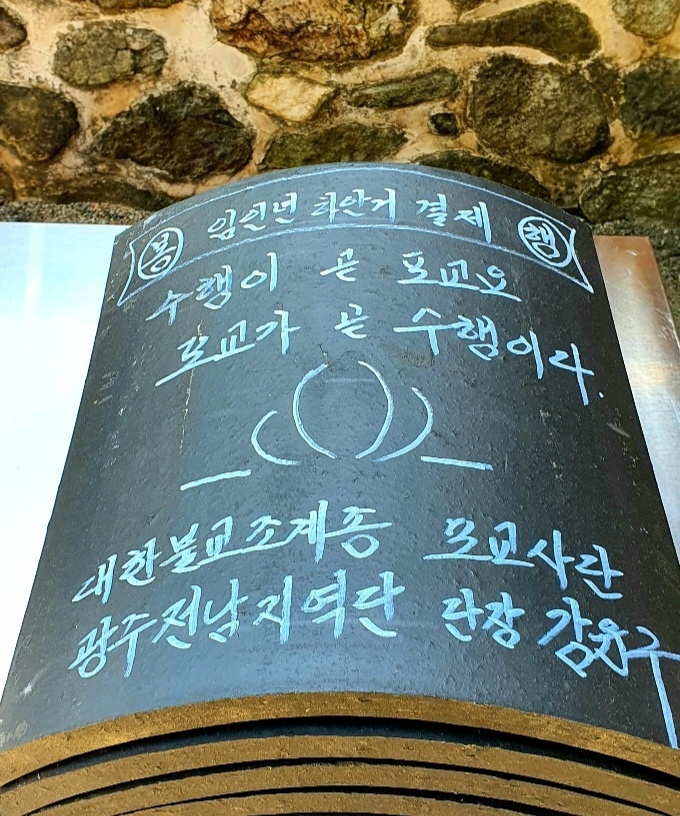 봉 임인년 하안거 결제 행
수행이 곧 포교요
포교가 곧 수행이다.
대한불교조계종 포교사단
광주전남지역단 단장